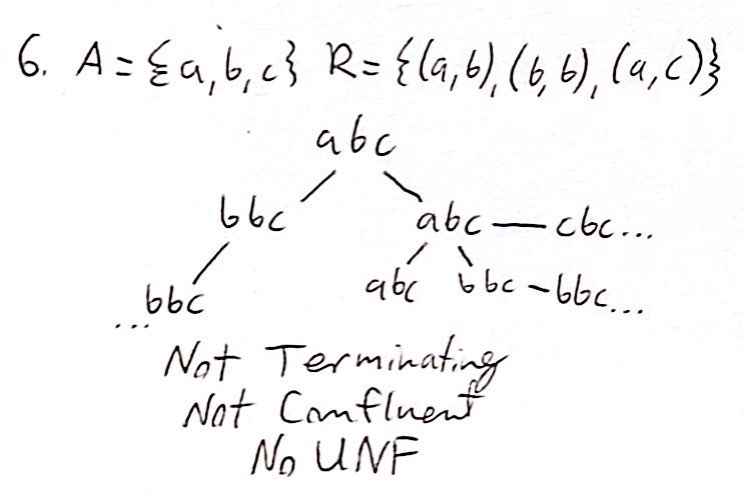 6. A = {a, b, c} R = {(a,b), (b,b), (a,c)}
abc
bbc abc — cbc...
...bbc abc bbc – bbc...
Not Terminating
Not Confluent
No UNF